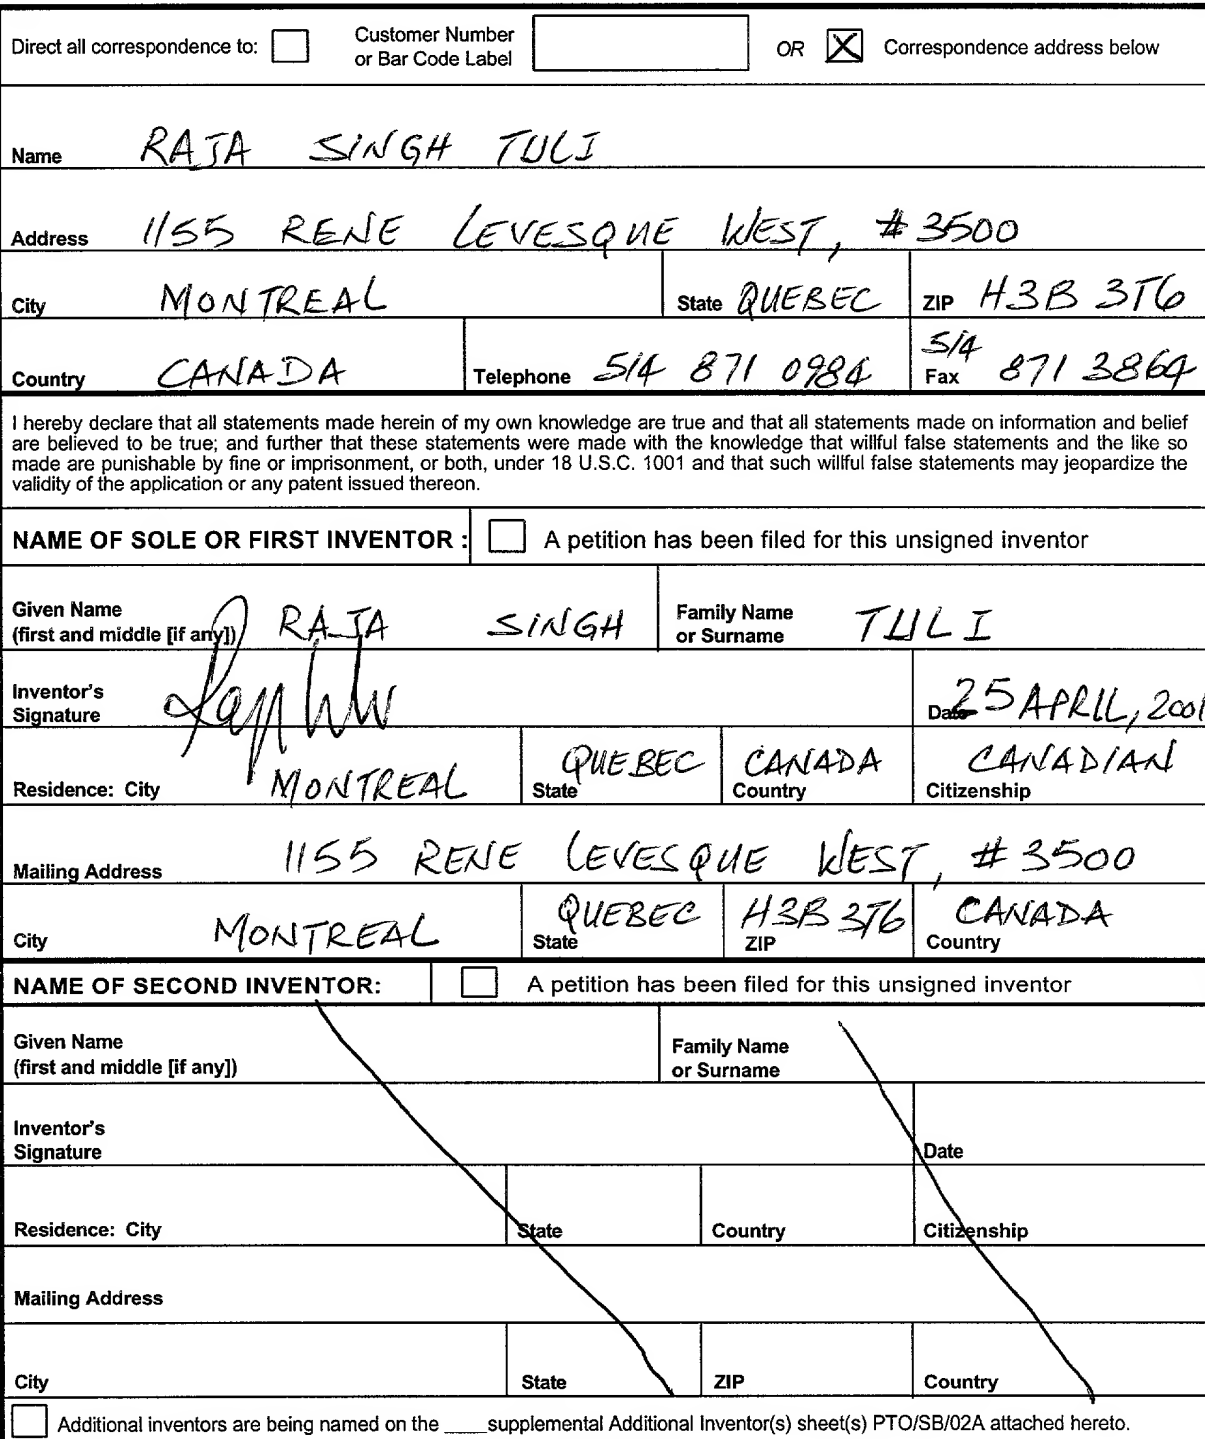 Direct all correspondence to: Customer Number or Bar Code Label OR X Correspondence address below
Name RAJA SINGH TULI
Address 1155 RENE LEVESQUE WEST, #3500
City MONTREAL State QUEBEC ZIP H3B 3T6
Country CANADA Telephone 514 871 0984 Fax 514 871 3864
I hereby declare that all statements made herein of my own knowledge are true and that all statements made on information and belief
are believed to be true; and further that these statements were made with the knowledge that willful false statements and the like so
made are punishable by fine or imprisonment, or both, under 18 U.S.C. 1001 and that such willful false statements may jeopardize the
validity of the application or any patent issued thereon.
NAME OF SOLE OR FIRST INVENTOR : A petition has been filed for this unsigned inventor
Given Name (first and middle [if any]) RAJA SINGH Family Name or Surname TULI
Inventor's Signature Date 25 APRIL, 2001
Residence: City MONTREAL State QUEBEC Country CANADA Citizenship CANADIAN
Mailing Address 1155 RENE LEVESQUE WEST, #3500
City MONTREAL State QUEBEC ZIP H3B 3T6 Country CANADA
NAME OF SECOND INVENTOR: A petition has been filed for this unsigned inventor
Given Name (first and middle [if any]) Family Name or Surname
Inventor's Signature Date
Residence: City State Country Citizenship
Mailing Address
City State ZIP Country
Additional inventors are being named on the ____supplemental Additional Inventor(s) sheet(s) PTO/SB/02A attached hereto.